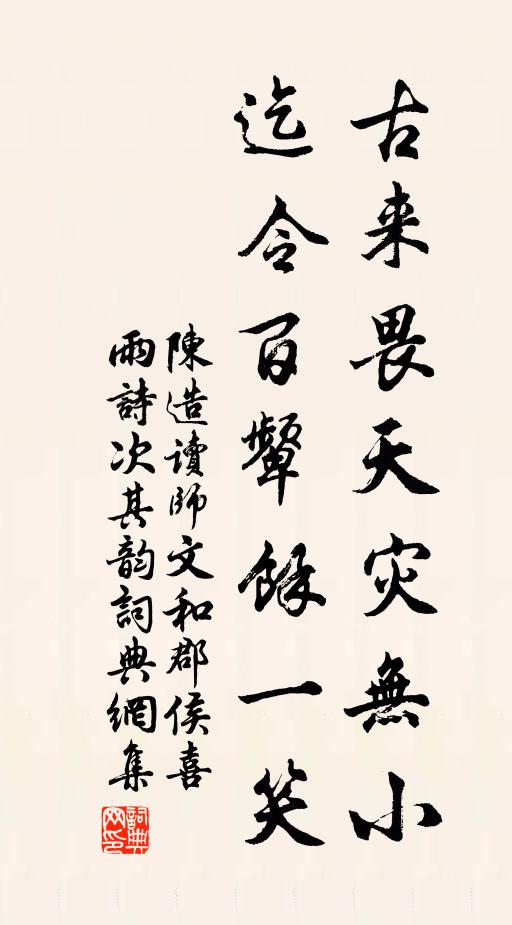 古来畏天灾無小
迄今百顰餘一笑
陳造讀師文和郡侯喜
雨詩次其韵詞典網集
詞典網印